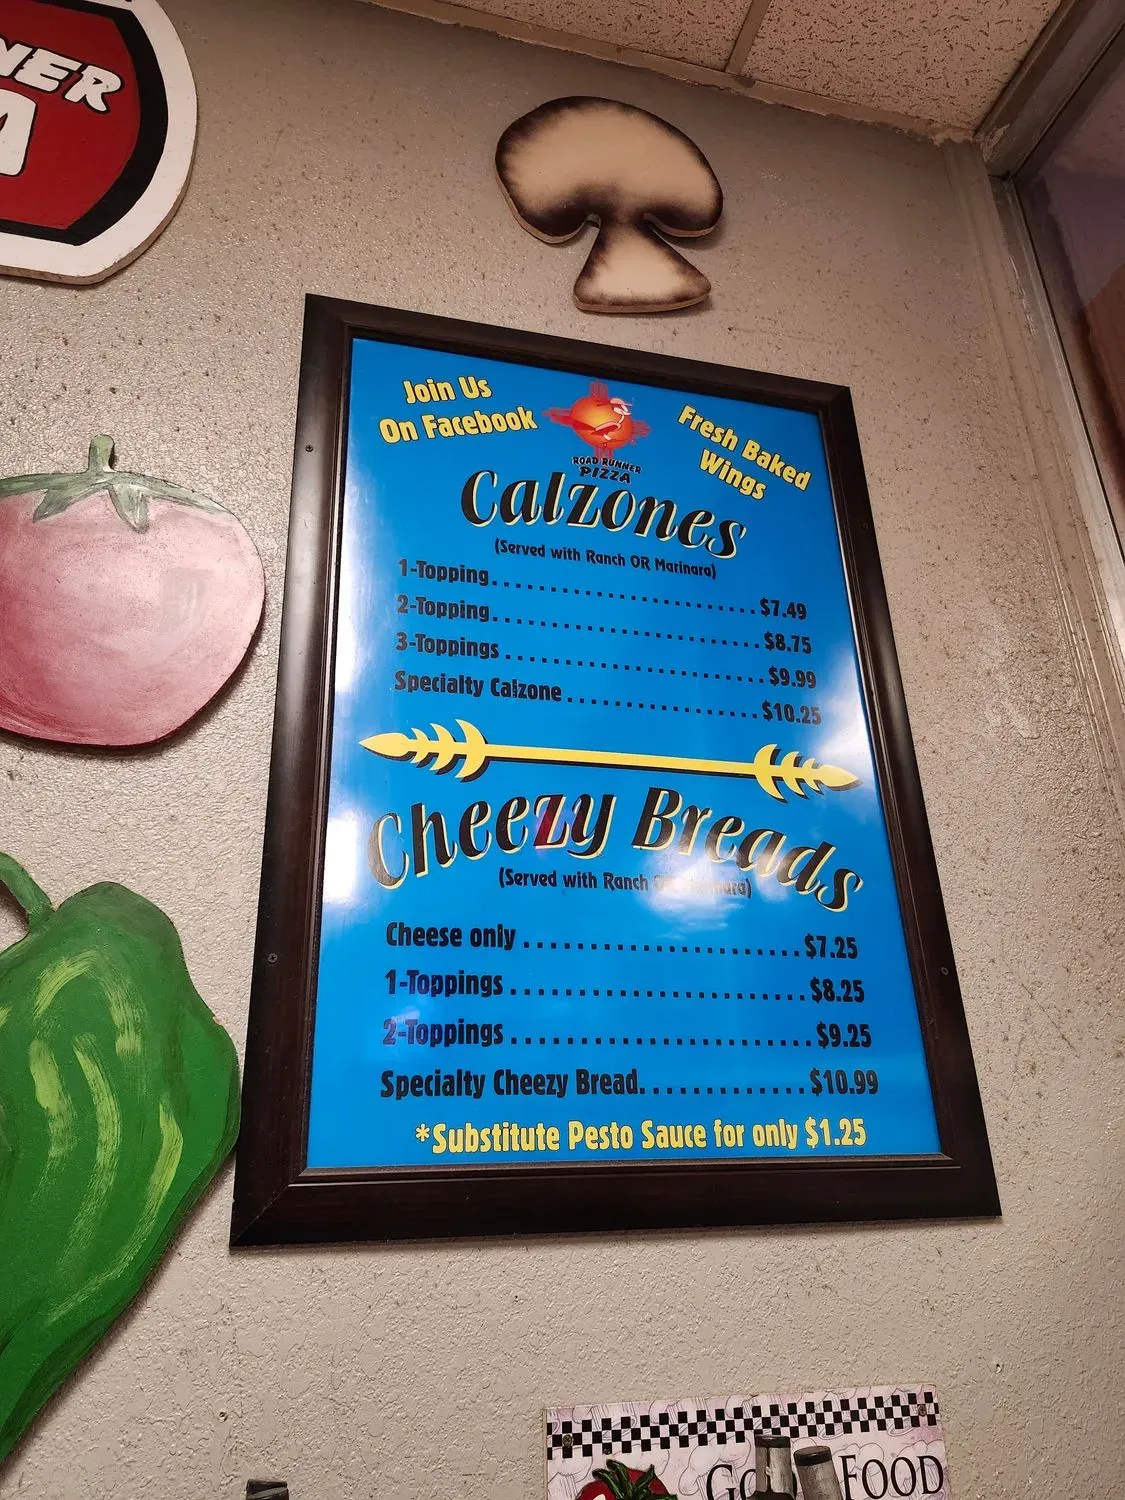 NER
A
Join Us
On Facebook
ROAD RUNNER
PIZZA
Fresh Baked
Wings
Calzones
(Served with Ranch OR Marinara)
1-Topping..........................$7.49
2-Topping..........................$8.75
3-Toppings .........................$9.99
Specialty Calzone ..................$10.25
Cheezy Breads
(Served with Ranch OR Marinara)
Cheese only .........................$7.25
1-Toppings ..........................$8.25
2-Toppings ..........................$9.25
Specialty Cheezy Bread. ............$10.99
*Substitute Pesto Sauce for only $1.25
FOOD